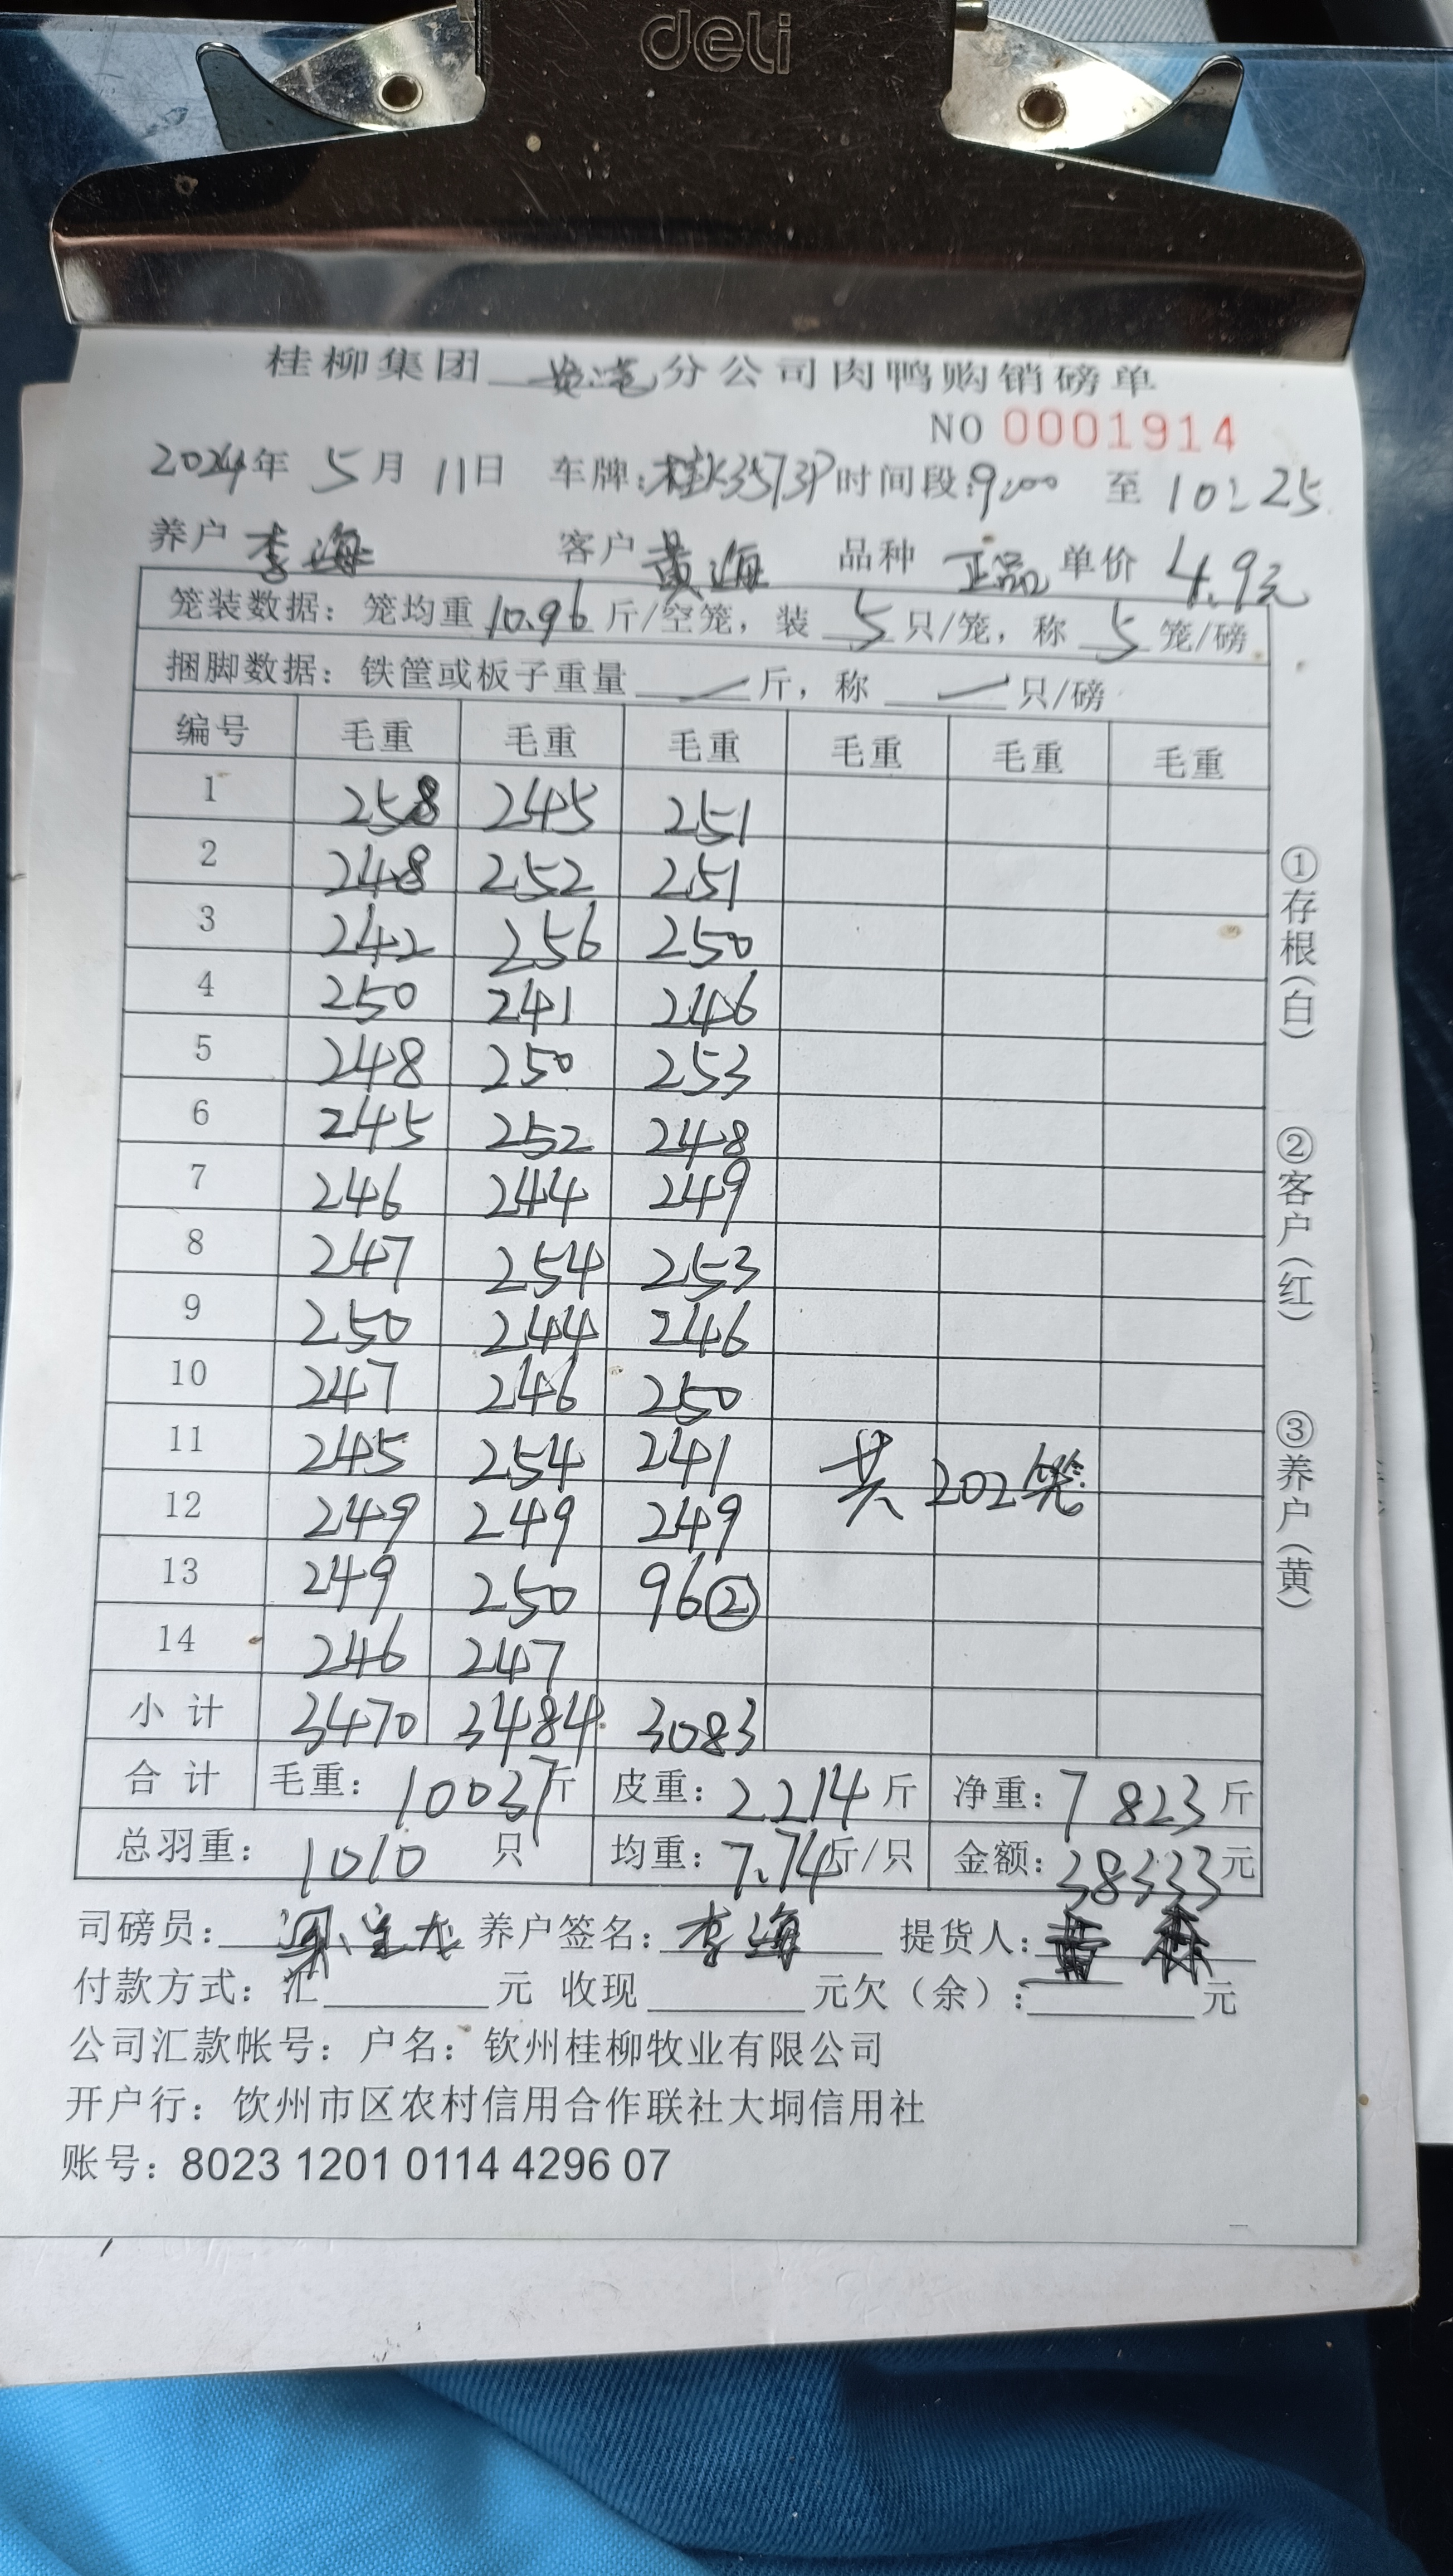 deli
桂柳集团 分公司肉鸭购销磅单
NO 0001914
2024年 5月 11日 车牌:桂K3573P 时间段:9:00 至 10:25
养户 李海 客户 黄海 品种 正品 单价 4.9元
笼装数据：笼均重 10.96 斤/空笼，装 5 只/笼，称 5 笼/磅
捆脚数据：铁筐或板子重量 — 斤，称 — 只/磅
编号 毛重 毛重 毛重 毛重 毛重 毛重
1 258 245 251
2 248 252 251
3 242 256 250
4 250 241 246
5 248 250 253
6 245 252 248
7 246 244 249
8 247 254 253
9 250 244 246
10 247 246 250
11 245 254 241
12 249 249 249
共 202笼
13 249 250 96②
14 246 247
小计 3470 3484 3083
合计 毛重：10037斤 皮重：2214斤 净重：7823斤
总羽重：1010 只 均重：7.74斤/只 金额：38333元
司磅员： 养户签名：李海 提货人：黄
付款方式：汇 元 收现 元欠（余）： 元
公司汇款帐号：户名：钦州桂柳牧业有限公司
开户行：饮州市区农村信用合作联社大垌信用社
账号：8023 1201 0114 4296 07
①存根（白）
②客户（红）
③养户（黄）